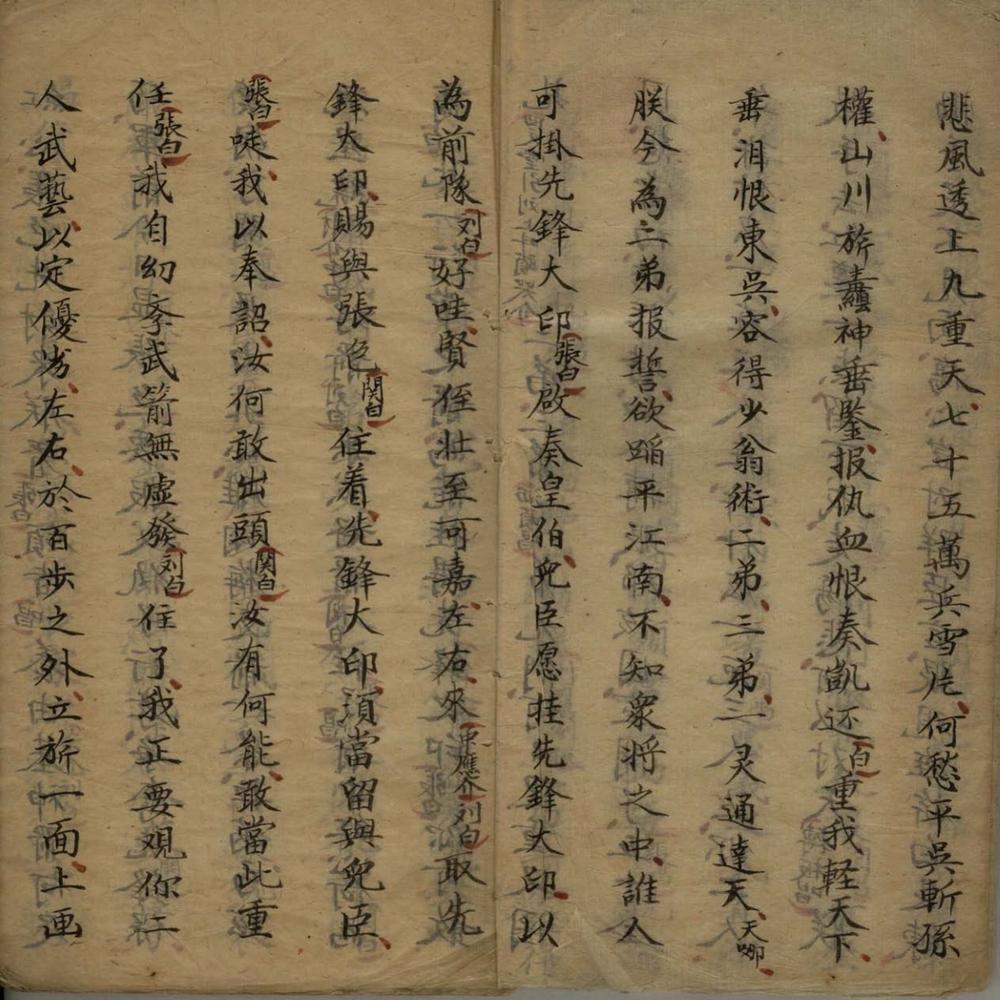 悲風透上九重天七十五萬兵雪片何愁平吳斬孫
權山川旂纛神垂鑒报仇血恨奏凱还白重我軽天下
垂泪恨東吳容得少翁術二弟三弟二灵通達天天嘟
朕今為二弟报誓欲蹈平江南不知衆將之中誰人
可掛先鋒大印張白啟奏皇伯兒臣愿挂先鋒大印以
為前隊刘白好哇賢侄壮至可嘉左右來應介刘白取先
鋒大印賜與張包関白住着先鋒大印須當留與兒臣
張白唗我以奉詔汝何敢出頭関白汝有何能敢當此重
任張白我自幼季武箭無虛發刘白住了我正要观你二
人武藝以定優劣左右於百步之外立旂一面上画